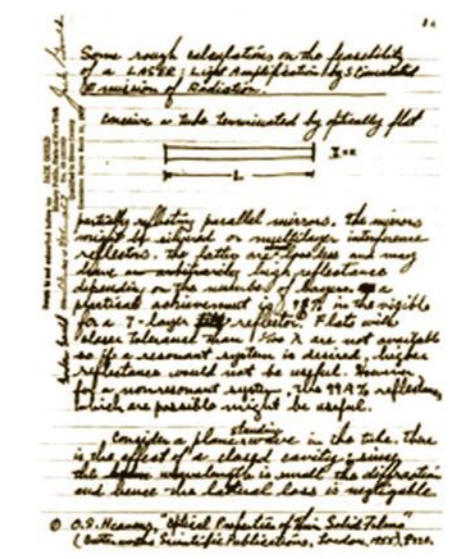 Some rough calculations on the feasibility
of a LASER: Light Amplification by Stimulated
Emission of Radiation.
conceive a tube terminated by optically flat
L
partially reflecting parallel mirrors. The mirrors
might be silvered or multilayer interference
reflectors. The latter are loss less and may
have an arbitrarily high reflectance
depending on the number of layers. a
practical achievement is 98% in the visible
for a 7-layer reflector. Flats with
closer tolerance than λ are not available
so if a resonant system is desired, higher
reflectance would not be useful. However
for a nonresonant system, the 99.9% reflectors
which are possible might be useful.
Consider a plane standing wave in the tube. There
is the effect of a closed cavity; since
the wavelength is small the diffraction
and hence the lateral loss is negligable
O.S. Heavens, "Optical Properties of Thin Solid Films"
(Butterworths Scientific Publications, London,
JACK GOULD